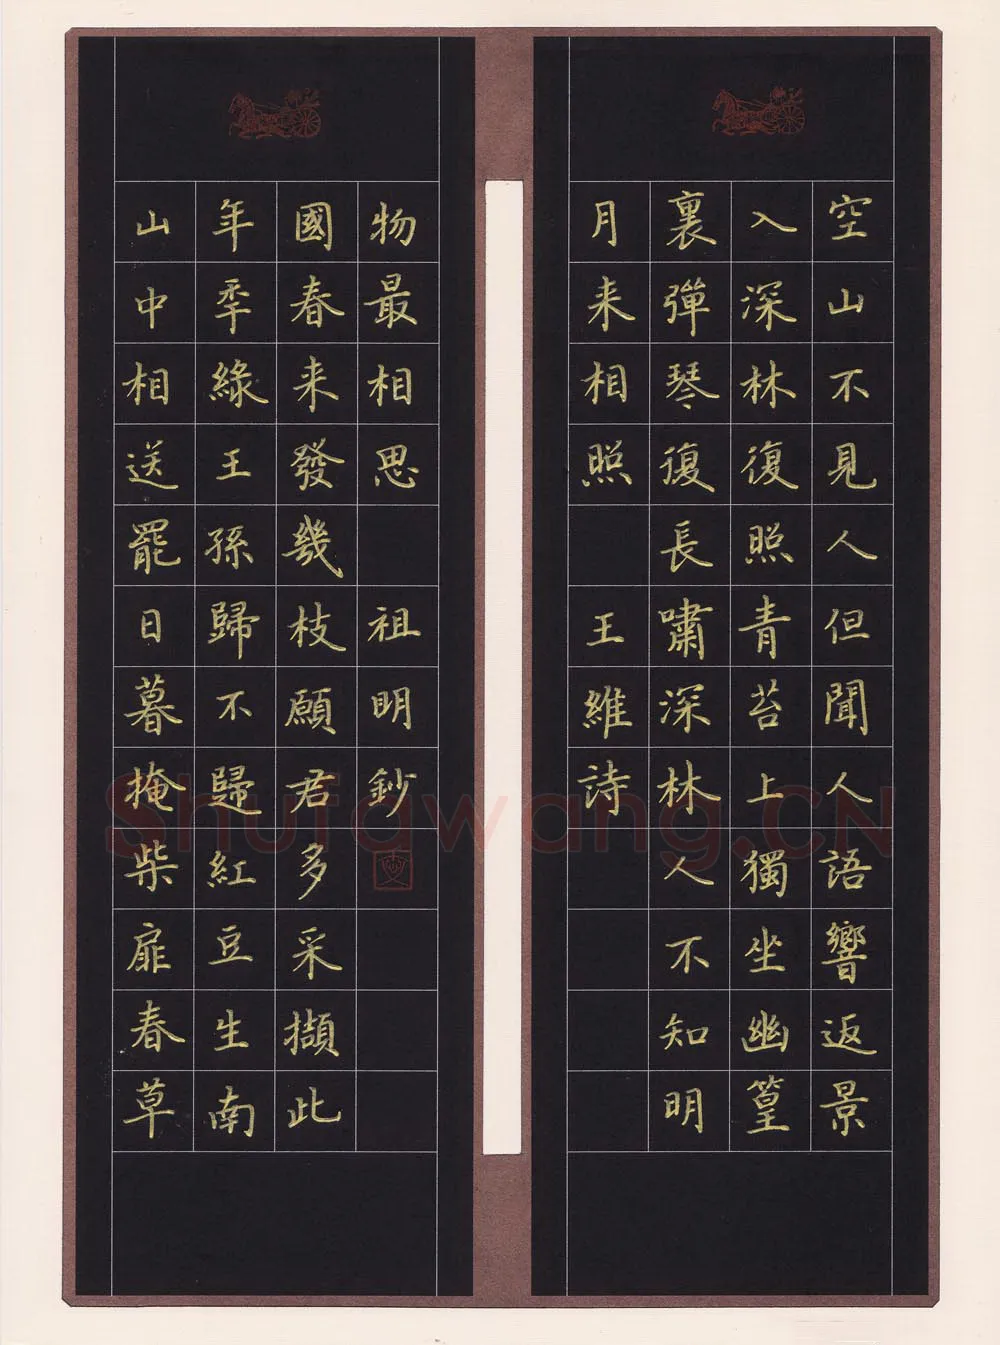 空山不見人但聞人語響返景
入深林復照青苔上獨坐幽篁
裏彈琴復長嘯深林人不知明
月来相照 王維詩
山中相送罷日暮掩柴扉春草
年秊綠王孫歸不歸紅豆生南
國春来發幾枝願君多采擷此
物最相思 祖明鈔
Shufawang.CN